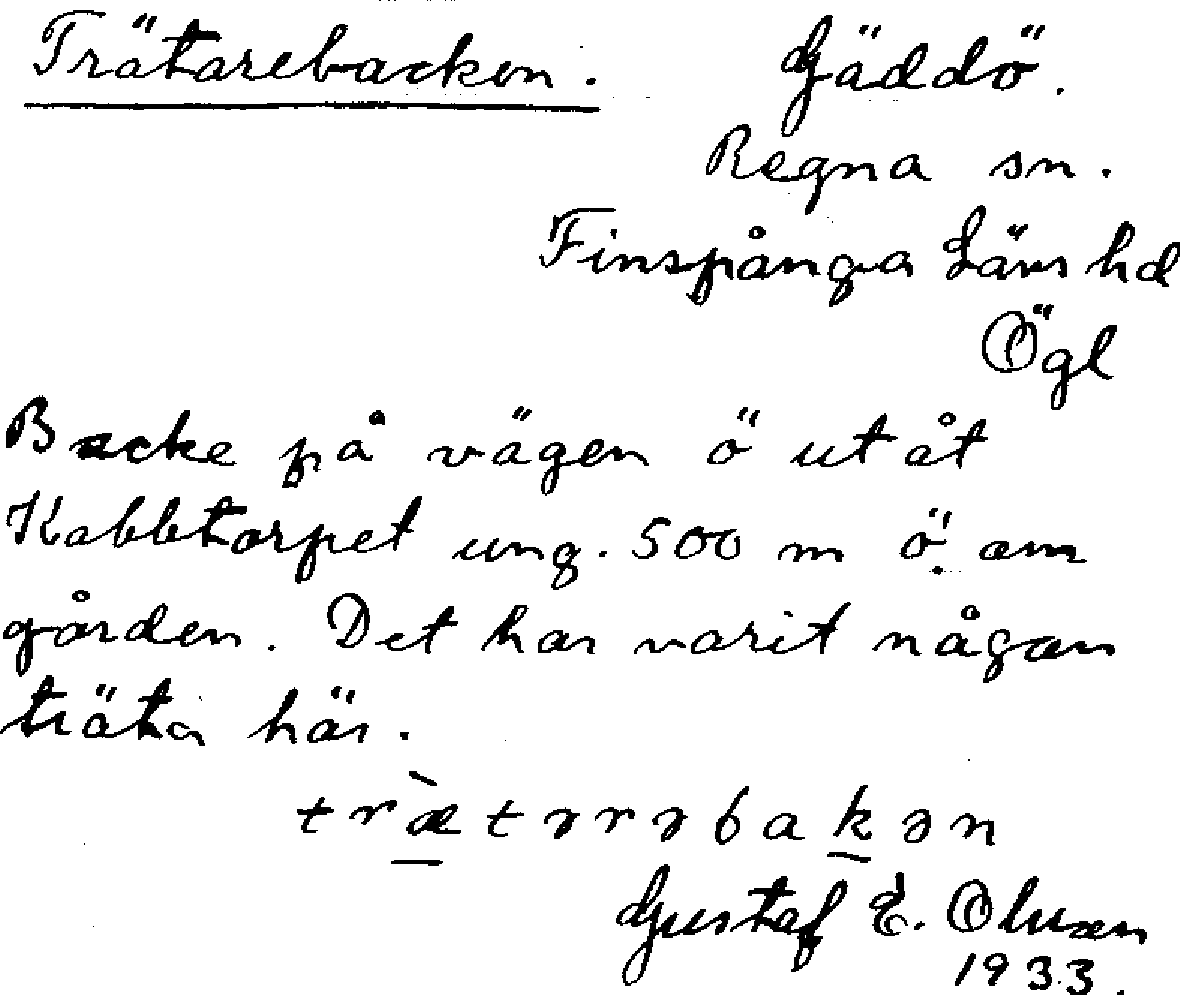 Trätarebacken. Gäddö.
Regna sn.
Finspånga Läns hd
Ögl
Backe på vägen ö ut åt
Kabbtorpet ung. 500 m ö. om
gården. Det har varit någon
träta här.
træ̀tərəbakən
Gustaf E.
1933.